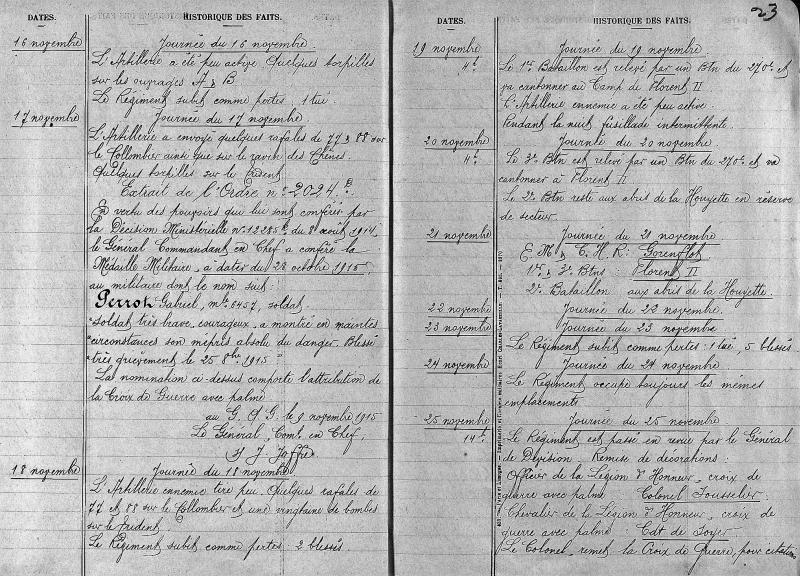 DATES.
HISTORIQUE DES FAITS.
16 novembre
Journée du 16 novembre
L'Artillerie a été peu active. Quelques torpilles
sur les ouvrages A & B
Le Régiment subit comme pertes : 1 tué.
17 novembre
Journée du 17 novembre
L'Artillerie a envoyé quelques rafales de 77 & 88 sur
le Collombier ainsi que sur le ravin des Chênes.
Quelques torpilles sur le trident
Extrait de l'Ordre n° 2024
En vertu des pouvoirs qui lui sont conférés par
la Décision Ministérielle n° 12285 du 8 août 1914,
le Général Commandant en Chef a conféré la
Médaille Militaire, à dater du 28 octobre 1915,
au militaire dont le nom suit :
Perrot Gabriel, mle 5457, soldat
"soldat très brave, courageux, a montré en maintes
"circonstances son mépris absolu du danger. Blessé
"très grièvement le 25 8bre 1915"
La nomination ci-dessus comporte l'attribution de
la Croix de Guerre avec palme
au G.Q.G. le 9 novembre 1915
Le Général, Comt en Chef,
J. Joffre
18 novembre
Journée du 18 novembre
L'Artillerie ennemie tire peu. Quelques rafales de
77 et 88 sur le Collombier et une vingtaine de bombes
sur le trident
Le Régiment subit comme pertes : 2 blessés
23
DATES.
HISTORIQUE DES FAITS.
19 novembre
Journée du 19 novembre
Le 1er Bataillon est relevé par un Btn du 270e et
va cantonner au Camp de Florent II
L'Artillerie ennemie a été peu active.
Pendant la nuit fusillade intermittente.
20 novembre
Journée du 20 novembre
Le 3e Btn est relevé par un Btn du 270e et va
cantonner à Florent II
Le 2e Btn reste aux abris de la Houyette en réserve
de secteur.
21 novembre
Journée du 21 novembre
E.M. & C.H.R : Gorenflot
1er & 3e Btns : Florent II
2e Bataillon aux abris de la Houyette.
22 novembre
Journée du 22 novembre.
23 novembre
Journée du 23 novembre
Le Régiment subit comme pertes : 1 tué, 5 blessés
24 novembre
Journée du 24 novembre
Le Régiment occupe toujours les mêmes
emplacements.
25 novembre
Journée du 25 novembre
Le Régiment est passé en revue par le Général
de Division. Remise de décorations :
Officier de la Légion d'Honneur, croix de
guerre avec palme Colonel Tousselier.
Chevalier de la Légion d'Honneur, croix de
guerre avec palme : Cdt de Soyer
Le Colonel remet la Croix de Guerre, pour citations